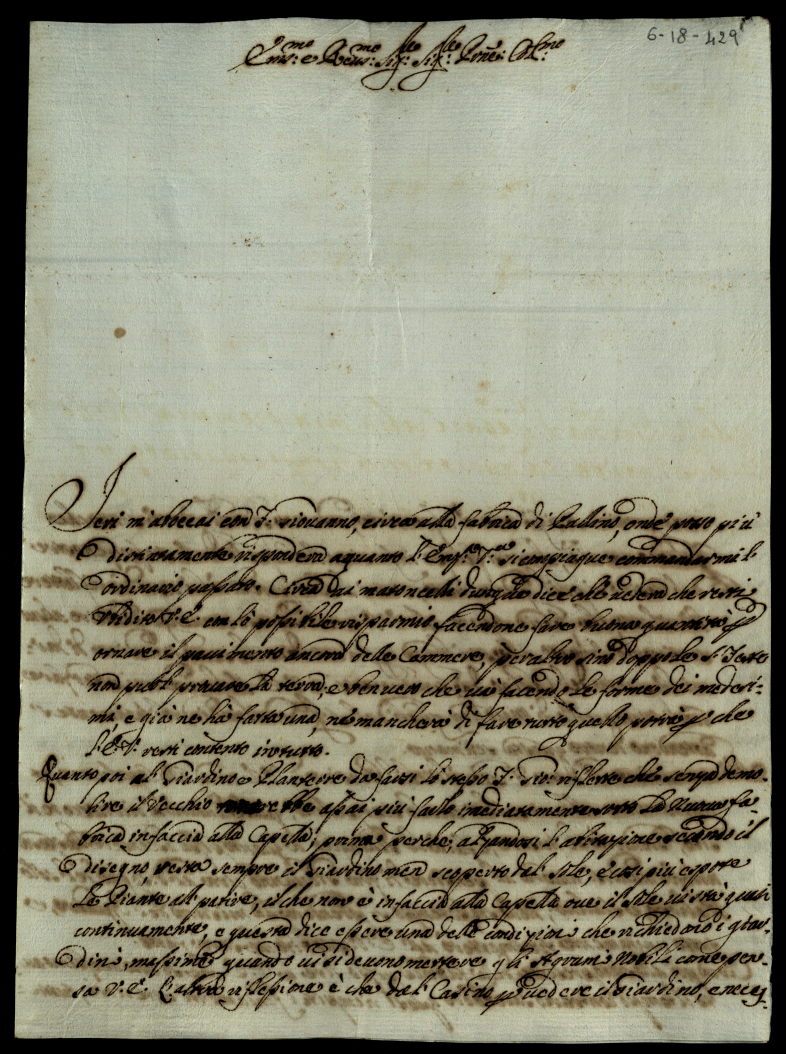 6-18-429
Em.mo e Rev.mo Sig.r Sig.r P̃rone Col.mo
Ieri m'abboccai con F. Giovanno, circa alla fabrica di Pallino, onde posso più
distintamente rispondere a quanto l'Em.a V.ra si compiaque commandarmi l'
ordinario passato. Circa dai matoncelli dunque dice che vederà che resti
V.E. con la possibile risparmio facendone fare buona quantità p
ornare il pavimento ancora delle Cammere, peraltro sino doppo le S.e Feste
non puol provare la terra; e ben vero che và facendo le forme dei medesi-
mi, e già ne hà fatta una, nè mancherà di fare tutto quello potrà p che
l'E.V. resti contento in tutto.
Quanto poi al Giardino e Piante da farsi lo stesso F. Gio: riflette che senza demo-
lire il Vecchio assai più farlo imediatamente sotto la nuova fa
brica in faccia alla Capella; prima perche, alzandosi l'abitazione secondo il
disegno, resta sempre il Giardino men scoperto dal Sole, e così più espore
le Piante al patire, il che non è in faccia alla Cappella ove il Sole vi stà quasi
continuamente, e questa dice essere una delle condizioni che richiedono i giar-
dini, massime quando vi si devono mettere gli Agrumi nobili come pen-
sa V.E. L'altra riflessione è che dal Casino p vedere il Giardino, e neces-